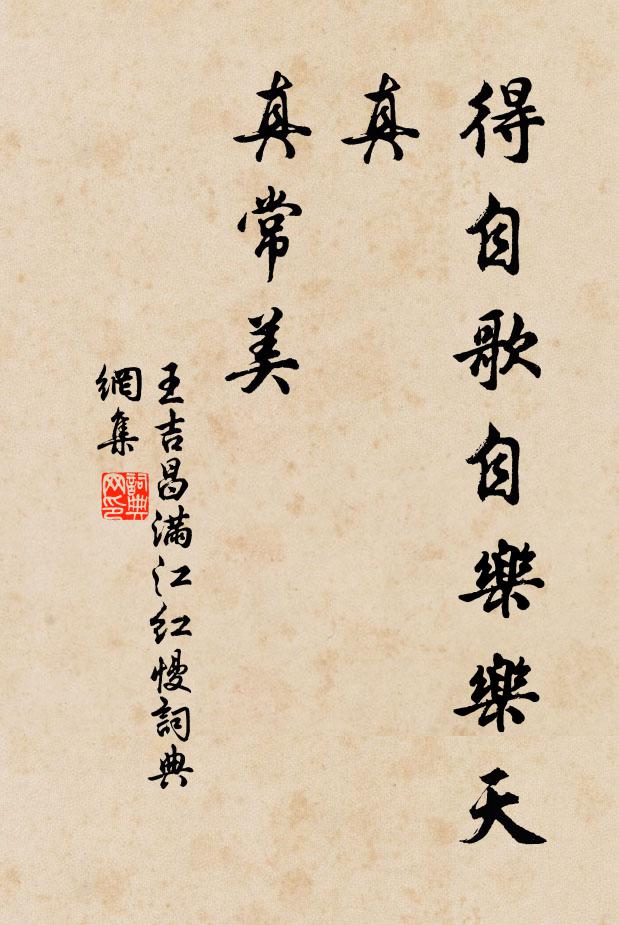 得自歌自樂樂天
真
真常美
王吉昌滿江紅慢詞典
網集
詞典
网印